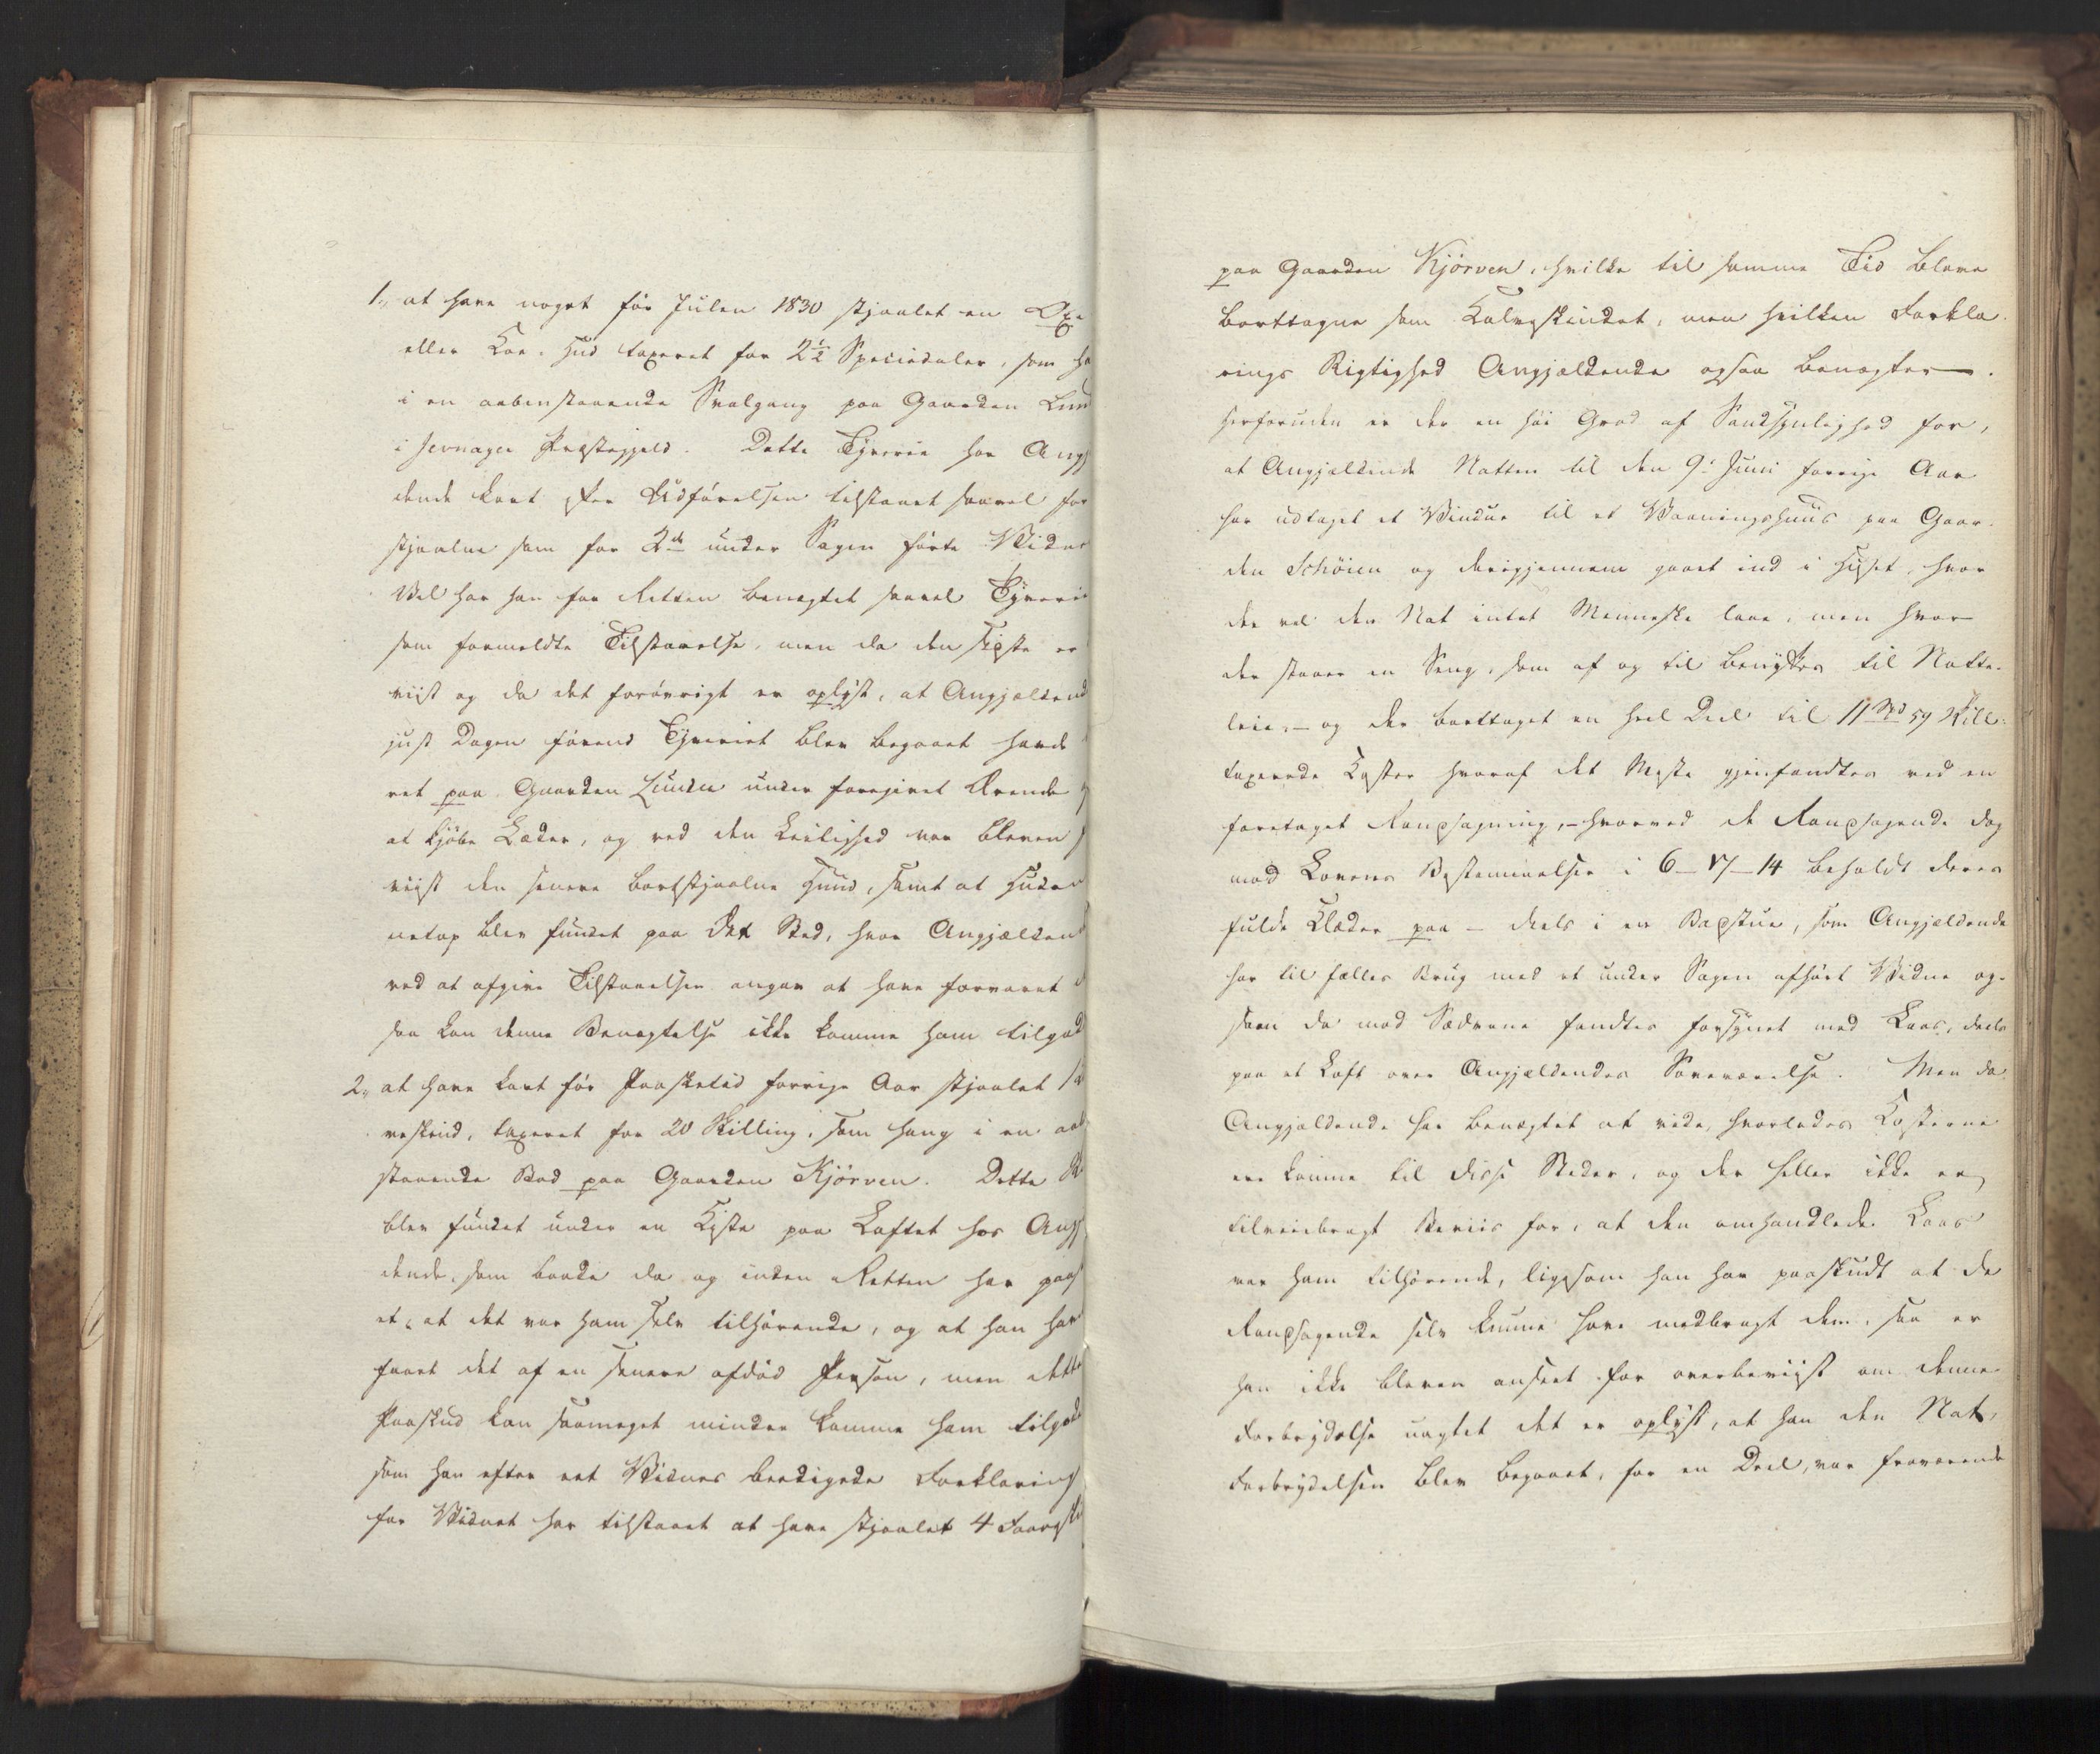 1., at have noget før Julen 1830 stjaalet en Oxe
eller Koe-Hud taxeret for 2½ Speciedaler, som ha
i en aabenstaaende Svalgang paa Gaarden Lun
i Jevnager Præstegjeld. Dette Tyverie har Angj
dende kort efter Udførelsen tilstaaet saavel for
stjaalne som for 2de under Sagen førte Vidner
Vel har han for Retten benegtet saavel Tyverie
som formeldte Tilstaaelse, men da den sidste er
viist og da det forøvrigt er oplyst, at Angjældend
just Dagen førend Tyveriet blev begaaet havde
ret paa Gaarden Lunden under foregivet Ærende
at kjøbe Læder, og ved den Leilighed var bleven
viist den senere bortstjaalne Huud, samt at Huden
netop blev fundet paa det Sted, hvor Angjælden
ved at afgive Tilstaaelsen angav at have forvaret
saa kan denne Benegtelse ikke komme ham tilgod
2., at have kort før Paasketid forrige Aar stjaalet
veskind, taxeret for 20 Skilling, som hang i en aab
staaende Bod paa Gaarden Kjørven. Dette
blev fundet under en Kiste paa Loftet hos Angj
dende, som baade da og inden Retten har paas
et, at det var ham selv tilhørende, og at han hav
faaet det af en senere afdød Person, men dette
Paaskud kan saameget mindre komme ham tilgode
som han efter eet Vidnes beedigede Forklaring
for Vidnet har tilstaaet at have stjaalet 4 Faareski
paa Gaarden Kjørven, hvilke til samme Tid bleve
borttagne som Kalveskindet, men hvilken Forkla-
rings Rigtighed Angjældende ogsaa benegter.
Herforuden er der en høi Grad af Sandsynlighed for,
at Angjældende Natten til den 9de Juni forrige Aar
har udtaget et Vindue til et Vaaningshuus paa Gaar-
den Schøien og derigjennem gaaet ind i Huset, hvor
der vel den Nat intet Menneske laae, men hvor
der staaer en Seng, som af og til benyttes til Natte-
leie, – og der borttaget en heel Deel til 11 Spd 59 Skill:
taxerede Koster hvoraf det Meste gjenfandtes ved en
foretaget Randsagning, – hvorved de Randsagende dog
mod Lovens Bestemmelse i 6–17–14 beholdt deres
fulde Klæder paa – deels i en Badstue, som Angjældende
har til fælles Brug med et under Sagen afhørt Vidne og-
saa da mod Sædvane fandtes forsynet med Laas, deels
paa et Loft over Angjældendes Soveværelse. Men da
Angjældende har benegtet at vide, hvorledes Kosterne
ere komne til disse Steder, og der heller ikke er
tilveiebragt Beviis for, at den omhandlede Laas
var ham tilhørende, ligesom han har paaskudt at de
Randsagende selv kunne have medbragt dem, saa er
han ikke bleven anseet for overbeviist om denne
Forbrydelse uagtet det er oplyst, at han den Nat,
Forbrydelsen blev begaaet, for en Deel, var fraværende